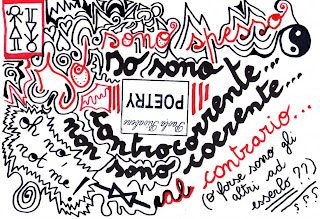 IO sono spesso
Io sono
controcorrente...
non sono coerente...
al contrario...
(o forse sono gli
altri ad
esserlo ??)
???
POETRY
Paola
oh no
not me!